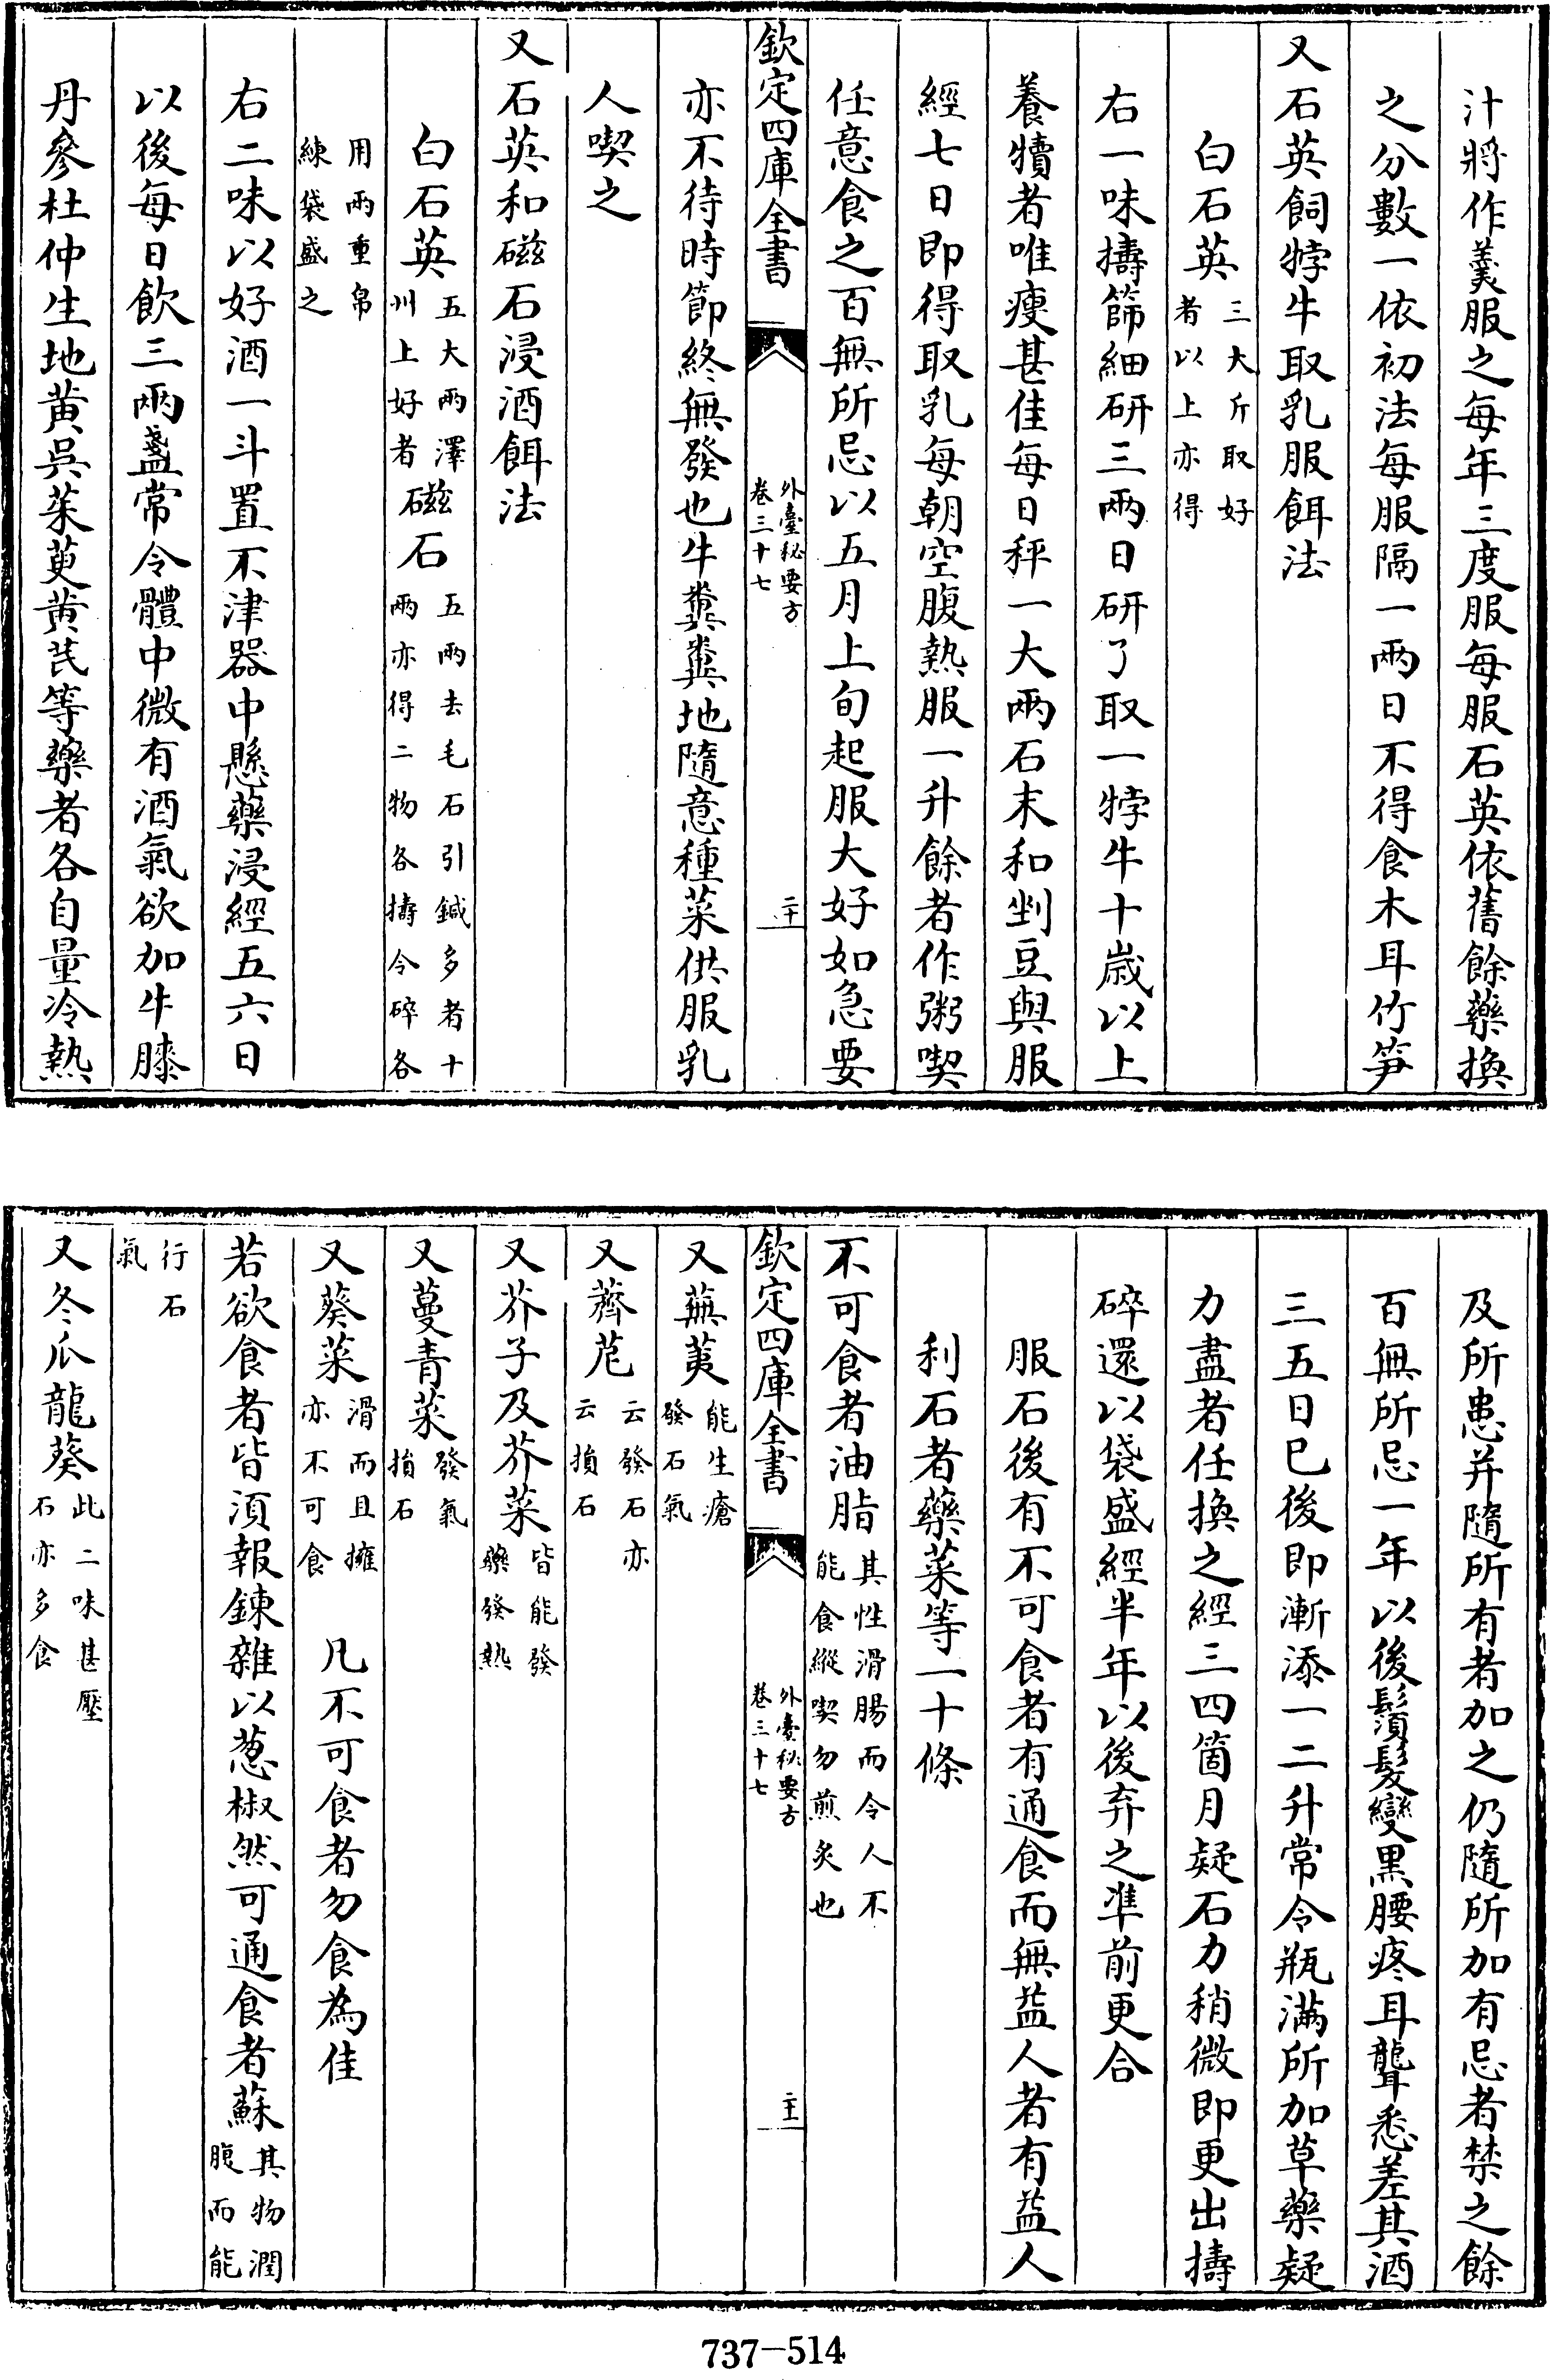 汁將作羹服之每年三度服每服石英依舊餘藥換
之分數一依初法每服隔一兩日不得食木耳竹笋
又石英飼牸牛取乳服餌法
白石英三大斤取好者以上亦得
右一味擣篩細研三兩日研了取一牸牛十歲以上
養犢者唯瘦甚佳每日秤一大兩石末和剉豆與服
經七日即得取乳每朝空腹熱服一升餘者作粥喫
任意食之百無所忌以五月上旬起服大好如急要
欽定四庫全書 外臺秘要方卷三十七 二十
亦不待時節終無發也牛糞糞地隨意種菜供服乳
人喫之
又石英和磁石浸酒餌法
白石英五大兩澤州上好者磁石五兩去毛石引鍼多者十兩亦得二物各擣令碎各
用兩重帛練袋盛之
右二味以好酒一斗置不津器中懸藥浸經五六日
以後每日飲三兩盞常令體中微有酒氣欲加牛膝
丹參杜仲生地黃吳茱萸黃芪等藥者各自量冷熱
及所患并隨所有者加之仍隨所加有忌者禁之餘
百無所忌一年以後鬚髮變黑腰疼耳聾悉差其酒
三五日已後即漸添一二升常令瓶滿所加草藥疑
力盡者任換之經三四箇月疑石力稍微即更出擣
碎還以袋盛經半年以後弃之准前更合
服石後有不可食者有通食而無益人者有益人
利石者藥菜等一十條
不可食者油脂其性滑腸而令人不能食縱喫勿煎炙也
欽定四庫全書 外臺秘要方卷三十七 二十一
又蕪荑能生瘡發石氣
又薺苨云發石亦云損石
又芥子及芥菜皆能發藥發熱
又蔓青菜發氣損石
又葵菜滑而且擁亦不可食 凡不可食者勿食為佳
若欲食者皆須報鍊雜以葱椒然可通食者蘇其物潤腹而能
行石氣
又冬瓜龍葵此二味甚壓石亦多食
737-514